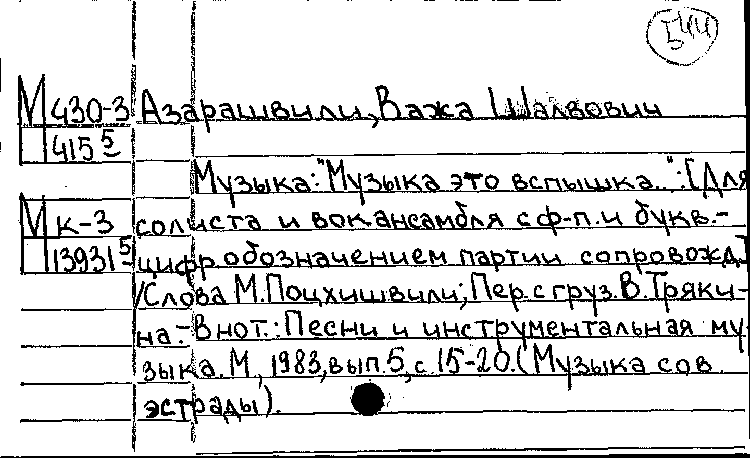 Б44
М 430-3 Азарашвили, Важа Шалвович
415 5
Музыка: "Музыка это вспышка..": [Для
М К-3 солиста и вок ансамбля с ф-п. и букв.-
13931 5 цифр. обозначением партии сопровожд.]
/Слова М. Поцхишвили; Пер. с груз. В. Тряки-
на.- В нот.: Песни и инструментальная му
зыка. М., 1983, вып. 5, с. 15-20. (Музыка сов.
эстрады).